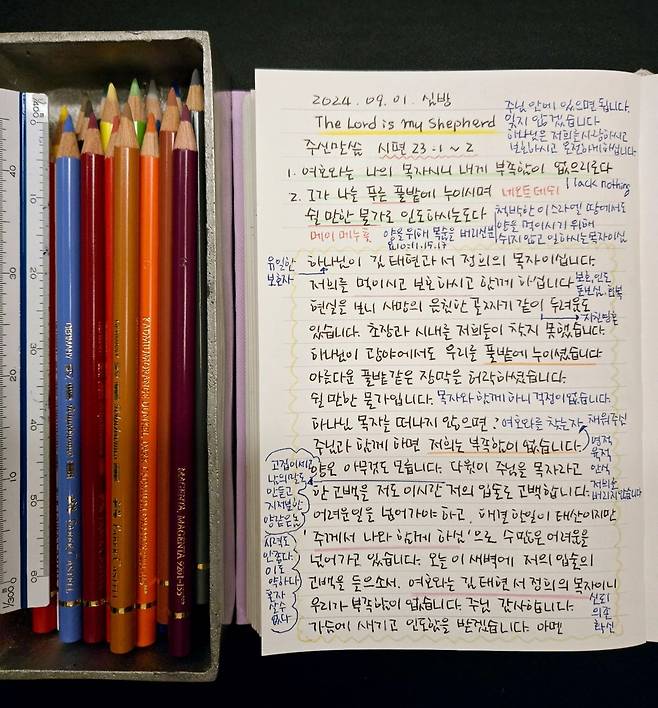 2024. 09. 01. 심방
The Lord is my Shepherd
주신말씀 시편 23:1~2
주님 안에 있으면 됩니다.
잊지 않겠습니다
하나님은 저희를 사랑하시고
보호하시고 온전하게 하십니다.
1. 여호와는 나의 목자시니 내게 부족함이 없으리로다
I lack nothing
2. 그가 나를 푸른 풀밭에 누이시며 네오트 데쉐
쉴 만한 물가로 인도하시는도다
메이 메누홋
척박한 이스라엘 땅에서도
양을 먹이시기 위해
쉬지 않고 일하시는 목자이심
양을 위해 목숨을 버리신분
요.10:11.15.17
유일한
보호자
하나님이 김 태현과 서 정희의 목자이십니다.
저희를 먹이시고 보호하시고 함께 하십니다
보호, 인도
돌보심, 회복
현실을 보니 사망의 음침한 골짜기 같이 두려움도
있습니다. 초장과 시내를 저희들이 찾지 못했습니다.
하나님이 광야에서도 우리를 풀밭에 누이셨습니다
아름다운 풀밭같은 장막을 허락하셨습니다.
쉴 만한 물가입니다. 목자와 함께 하니 걱정이 없습니다
하나님 목자를 떠나지 않으면! 여호와를 찾는 자 채워주심
주님과 함께 하면 저희는 부족함이 없습니다.
영적
육적
안식
저희를
버리지 않습니다
양은 아무것도 모릅니다. 다윗이 주님을 목자라고
한 고백을 저도 이시간 저의 입술로 고백합니다.
어려운일을 넘어가야 하고, 해결할일이 태산이지만
'주께서 나와 함께 하심'으로 수많은 어려움을
넘어가고 있습니다. 오늘 이 새벽에 저의 입술의
고백을 들으소서. 여호와는 김 태현 서 정희의 목자이니
우리가 부족함이 없습니다. 주님 감사합니다.
가슴에 새기고 인도함을 받겠습니다. 아멘
고집이 세고
시력도
안좋다.
이도
약하다
혼자
살수
없다
신뢰
의존
확신
GERMANY
FABER-CASTELL
MAGENTA, MAGENTA 9201-133
1/300
400
10
20
30
40
50
60